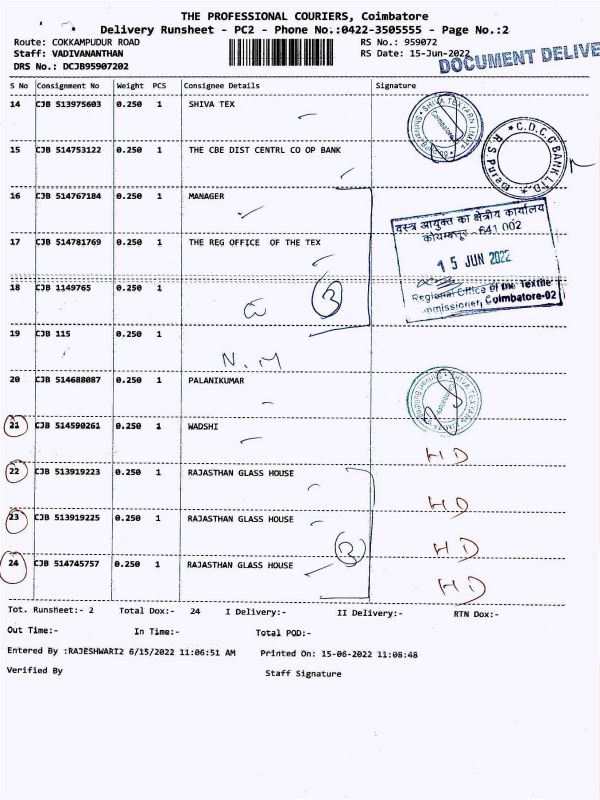 THE PROFESSIONAL COURIERS, Coimbatore
Delivery Runsheet - PC2 - Phone No.:0422-3505555 - Page No.:2
Route: COKKAMPUDUR ROAD RS No.: 959072
Staff: VADIVANANTHAN RS Date: 15-Jun-2022
DOCUMENT DELIVE
DRS No.: DCJB95907202
S No Consignment No Weight PCS Consignee Details Signature
14 CJB 513975603 0.250 1 SHIVA TEX
SHIVA TEXYARN LIMITED
Coimbatore
15 CJB 514753122 0.250 1 THE CBE DIST CENTRL CO OP BANK
C.D.C.C. BANK LTD.
R.S.Puram
16 CJB 514767184 0.250 1 MANAGER
वस्त्र आयुक्त का क्षेत्रीय कार्यालय
कोयम्बत्तूर - 641 002
17 CJB 514781769 0.250 1 THE REG OFFICE OF THE TEX
15 JUN 2022
18 CJB 1149765 0.250 1
3
Regional Office of the Textile
Commissioner, Coimbatore-02
19 CJB 115 0.250 1
N.M
20 CJB 514688087 0.250 1 PALANIKUMAR
SHIVA TEXYARN LIMITED
21 CJB 514590261 0.250 1 WADSHI
HD
22 CJB 513919223 0.250 1 RAJASTHAN GLASS HOUSE
HD
23 CJB 513919225 0.250 1 RAJASTHAN GLASS HOUSE
3 HD
24 CJB 514745757 0.250 1 RAJASTHAN GLASS HOUSE
HD
Tot. Runsheet:- 2 Total Dox:- 24 I Delivery:- II Delivery:- RTN Dox:-
Out Time:- In Time:- Total POD:-
Entered By :RAJESHWARI2 6/15/2022 11:06:51 AM Printed On: 15-06-2022 11:08:48
Verified By Staff Signature